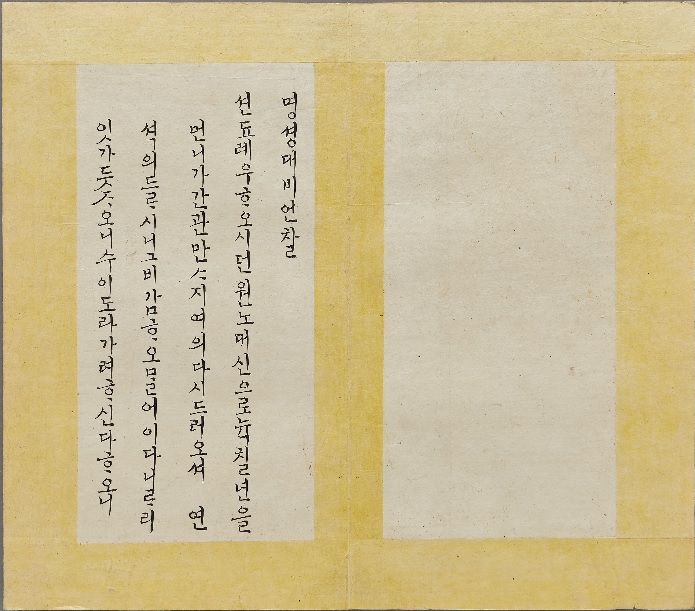 명셩대비언찰
션됴례우ᄒᆞ오시던원노대신으로뉵칠년을
먼니가간관만ᄉᆞ지여의다시드러오셔 연
셕의드르시니그비감ᄒᆞ오믈어이다니르리
잇가듯ᄌᆞ오니수이도라가려ᄒᆞ신다ᄒᆞ오니